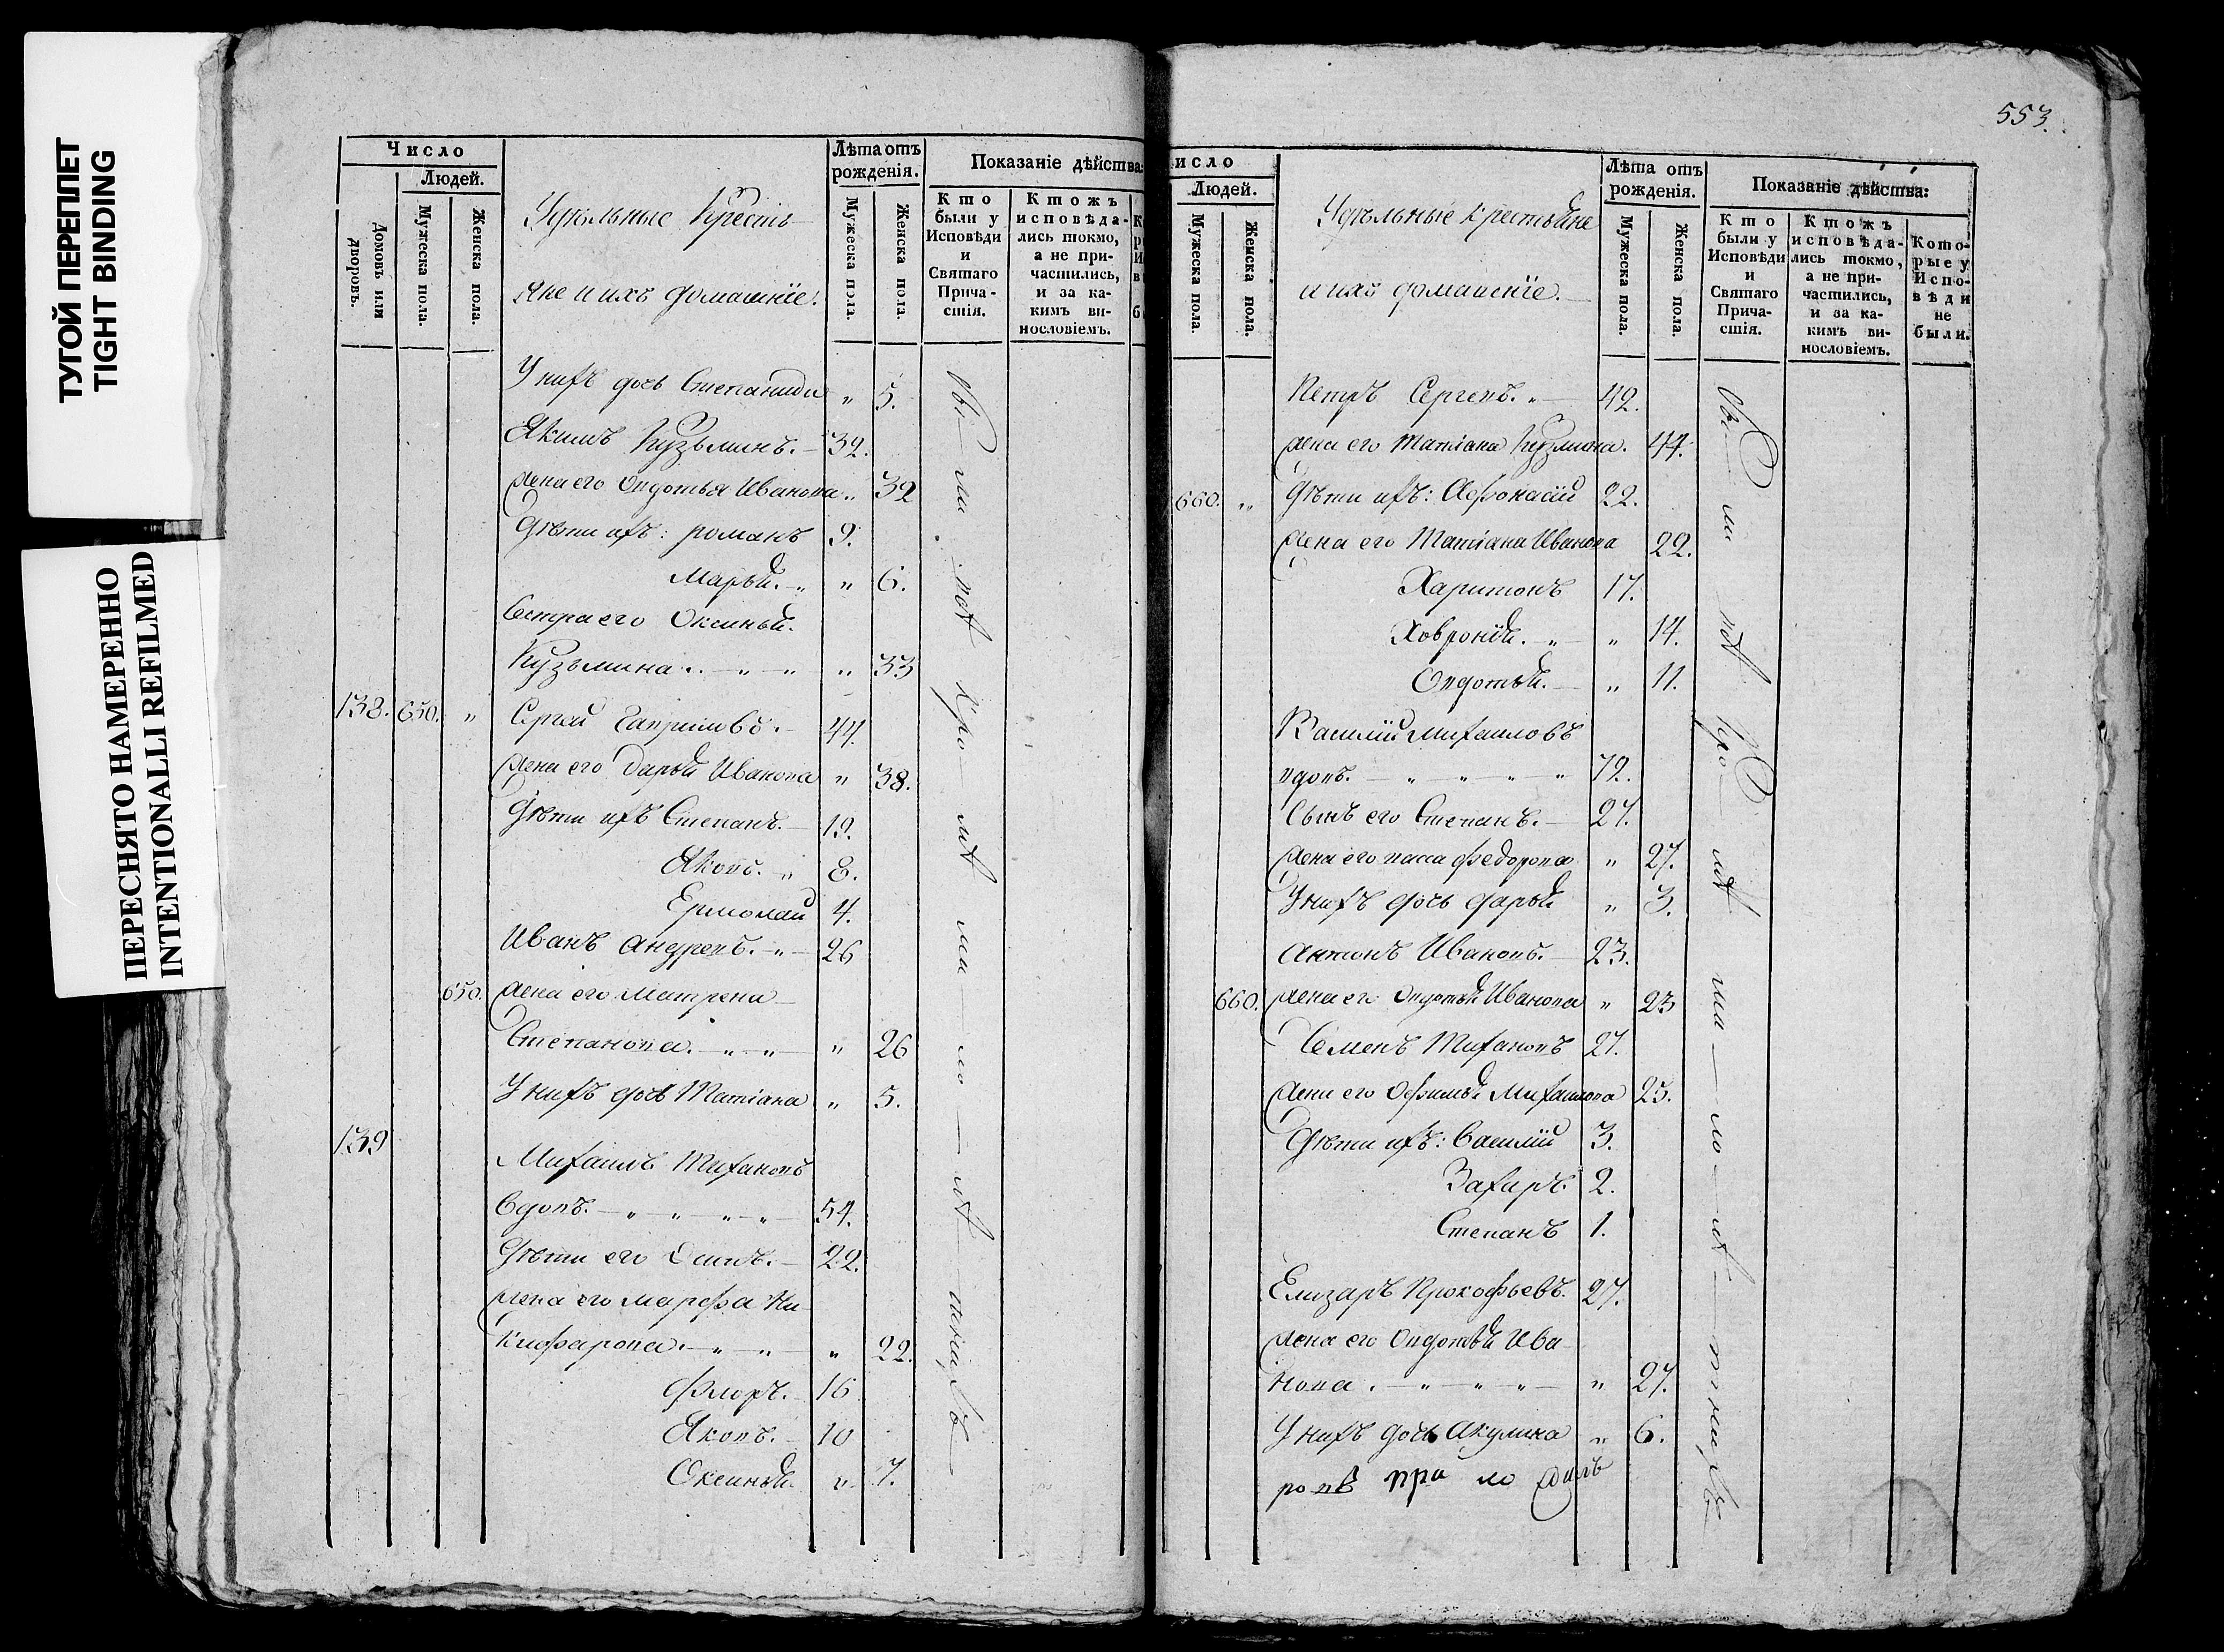 ТУГОЙ ПЕРЕПЛЕТ
TIGHT BINDING
ПЕРЕСНЯТО НАМЕРЕННО
INTENTIONALLI REFILMED
Число
Людей.
Домовъ или дворовъ.
Мужеска пола.
Женска пола.
Удѣльные Кресть
яне и ихъ домашніе.
Лѣта отъ рожденія.
Мужеска пола.
Женска пола.
Показаніе дѣйства:
Кто были у Исповѣди и Святаго Прича-стія.
Ктожъ исповѣда-лись токмо, а не при-частились, и за ка-кимъ ви-нословіемъ.
У нихъ дочь Степанида „ 5.
Якимъ Кузьминъ. 32.
жена его Овдотья Иванова „ 32
Дѣти ихъ: романъ 9.
Марья. „ 6.
Сестра его Оксинья
Кузьмина „ 33
138. 650. „ Сергей Гавриловъ. 44.
жена его Дарья Иванова „ 38.
Дѣти ихъ Степанъ. 19.
Яковъ. 8.
Ермолай 4.
Иванъ андреевъ. 26
650. жена его Матрена
Степанова. „ 26
У нихъ дочь Татіана „ 5.
139
Михаилъ Тихановъ
вдовъ. 54.
Дѣти его Осипъ. 22.
жена его марфа Ни
кифарова. „ 22.
Флоръ. 16
Яковъ. 10
Оксинья. „ 7.
553.
исло
Людей.
Мужеска пола.
Женска пола.
Удѣльные крестьяне
и ихъ домашніе.
Лѣта отъ рожденія.
Мужеска пола.
Женска пола.
Показаніе дѣйства:
Кто были у Исповѣди и Святаго Прича-стія.
Ктожъ исповѣда-лись токмо, а не при-частились, и за ка-кимъ ви-нословіемъ.
Кото-рые у Испо-вѣди не были.
Петръ Сергевъ. 42.
жена его Татіана Кузмина. 44.
660. „ Дѣти ихъ: Афонасій 22.
жена его Татіана Иванова 22.
Харитонъ 17.
Ховронія. „ 14.
Овдотья. „ 11.
Василій Михаиловъ
вдовъ. 72.
Сынъ его Степанъ. 27.
жена его васса федорова „ 27.
У нихъ дочь дарья „ 3.
антонъ Ивановъ. 23.
660. жена его Овдотья Иванова „ 23
Семенъ Тихановъ 27.
жена его Офимья Михаилова 25.
Дѣти ихъ: Василій 3.
Захаръ. 2.
Степанъ 1.
Елизаръ Прокофьевъ. 27.
жена его Овдотья Ива
нова. „ 27.
У нихъ дочь Акулина „ 6.